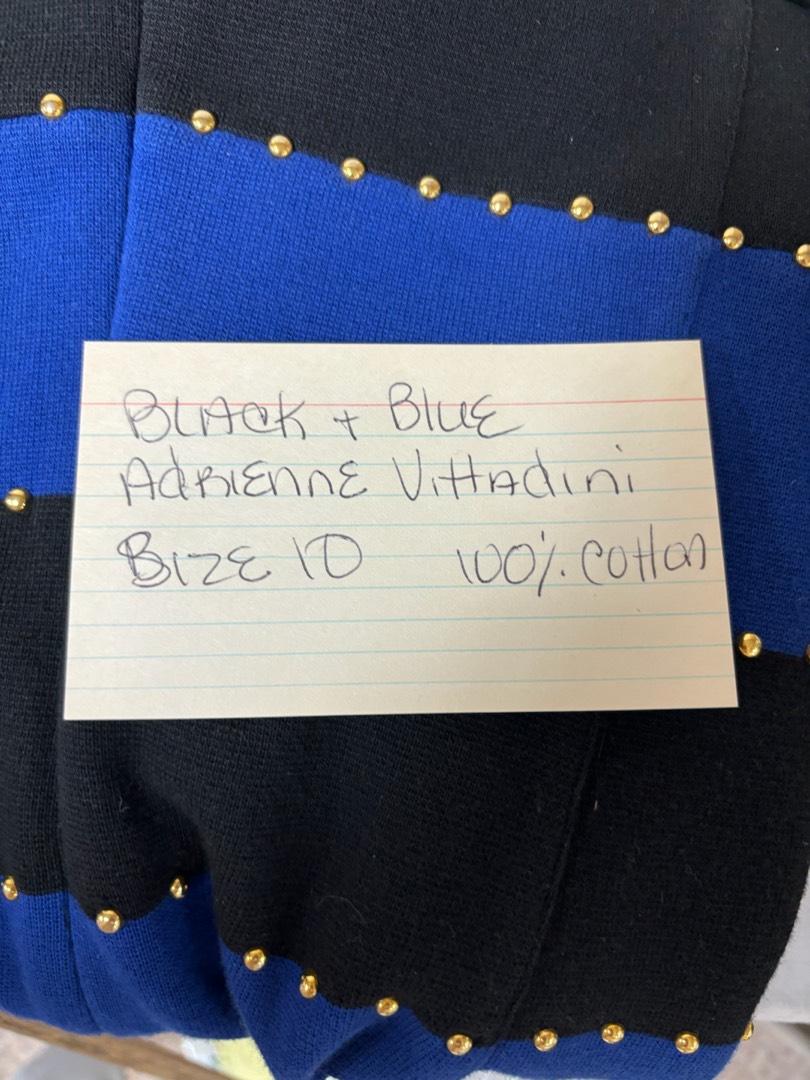 BLACK + BLUE
AdRIEnnE VittAdini
BIZE 10 100% Cotton